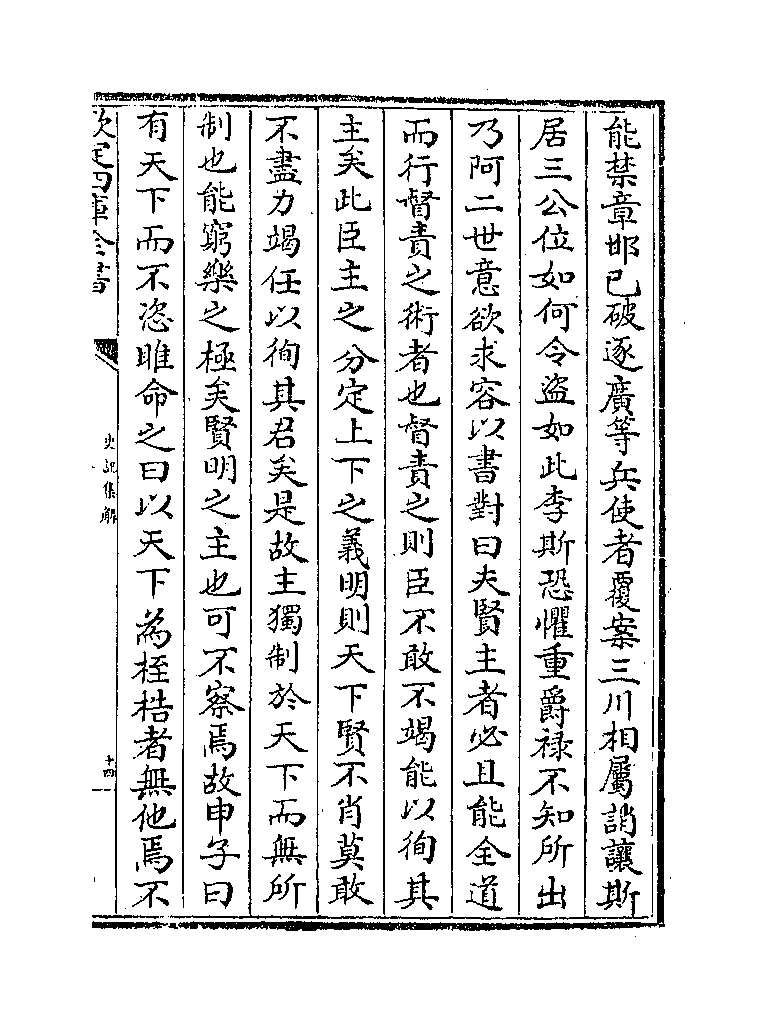 能禁章邯已破逐廣等兵使者覆案三川相屬誚讓斯
居三公位如何令盜如此李斯恐懼重爵禄不知所出
乃阿二世意欲求容以書對曰夫賢主者必且能全道
而行督責之術者也督責之則臣不敢不竭能以徇其
主矣此臣主之分定上下之義明則天下賢不肖莫敢
不盡力竭任以徇其君矣是故主獨制於天下而無所
制也能窮樂之極矣賢明之主也可不察焉故申子曰
有天下而不恣睢命之曰以天下為桎梏者無他焉不
欽定四庫全書
史記集解
十四